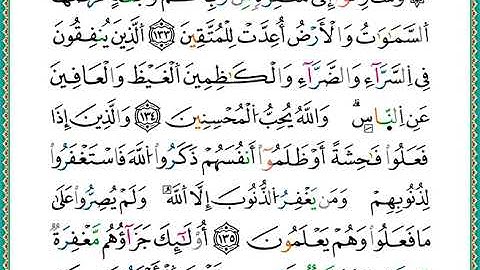 وَسَارِعُوٓا۟ إِلَىٰ مَغْفِرَةٍ مِّن رَّبِّكُمْ وَجَنَّةٍ عَرْضُهَا
ٱلسَّمَٰوَٰتُ وَٱلْأَرْضُ أُعِدَّتْ لِلْمُتَّقِينَ ١٣٣ ٱلَّذِينَ يُنفِقُونَ
فِى ٱلسَّرَّآءِ وَٱلضَّرَّآءِ وَٱلْكَٰظِمِينَ ٱلْغَيْظَ وَٱلْعَافِينَ
عَنِ ٱلنَّاسِ ۗ وَٱللَّهُ يُحِبُّ ٱلْمُحْسِنِينَ ١٣٤ وَٱلَّذِينَ إِذَا
فَعَلُوا۟ فَٰحِشَةً أَوْ ظَلَمُوٓا۟ أَنفُسَهُمْ ذَكَرُوا۟ ٱللَّهَ فَٱسْتَغْفَرُوا۟
لِذُنُوبِهِمْ وَمَن يَغْفِرُ ٱلذُّنُوبَ إِلَّا ٱللَّهُ وَلَمْ يُصِرُّوا۟ عَلَىٰ
مَا فَعَلُوا۟ وَهُمْ يَعْلَمُونَ ١٣٥ أُو۟لَٰٓئِكَ جَزَآؤُهُم مَّغْفِرَةٌ